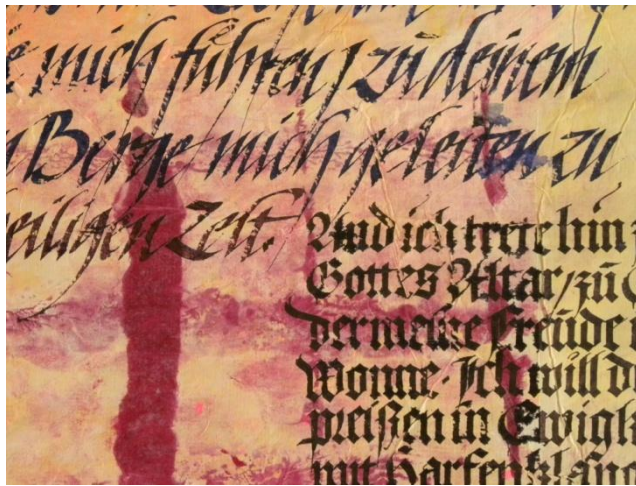 mich führen, zu deinem
Berge mich geleiten zu
heiligen Zelt.
Und ich trete hin
Gottes Altar, zu
der meine Freude
Wonne. Ich will
preißen in Ewigk
mit Harfenklang